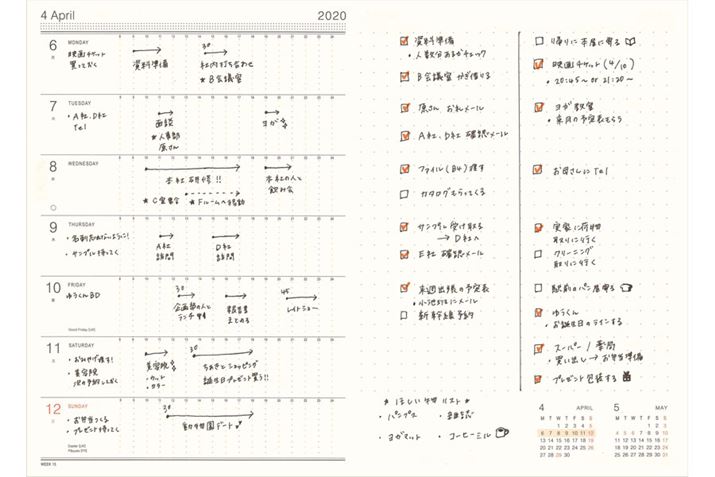 4 April
2020
6 MONDAY
映画チケット
買っておく
資料準備
30
社内打ち合わせ
★B会議室
7 TUESDAY
・A社、D社
Tel
面談
★人事部
原さん
ヨガ
8 WEDNESDAY
本社研修!!
★C室集合
★Fルームへ移動
本社の人と
飲み会
9 THURSDAY
・名刺忘れないように!
・サンプル持ってく
A社
訪問
D社
訪問
10 FRIDAY
ゆうくんBD
30
企画部の人と
ランチ
報告書
まとめる
45
レイトショー
Good Friday
11 SATURDAY
・おみやげ渡す!
・美容院
次の予約しておく
美容院
・カット
・カラー
30
ちあきとショッピング
誕生日プレゼント買う!!
12 SUNDAY
・お弁当つくる
・プレゼント持ってく
30
動物園デート
WEEK 15
資料準備
・人数分あるかチェック
B会議室 かぎ借りる
原さん お礼メール
A社、D社 確認メール
ファイル(B4)渡す
カタログもらってくる
サンプル受け取る
→ D社へ
E社 確認メール
来週出張の予定表
・小池サンにメール
新幹線予約
★ほしい物リスト★
・パンプス ・雑誌
・ヨガマット ・コーヒーミル
帰りに本屋に寄る
映画チケット(4/10)
・20:45~ or 21:20~
ヨガ教室
・来月の予定表もらう
お母さんにTel
実家に荷物
取りに行く
クリーニング
取りに行く
駅前のパン屋寄る
ゆうくん
・お誕生日のラインする
スーパー/薬局
・買い出し→お弁当準備
プレゼント包装する
4 APRIL
M T W T F S S
1 2 3 4 5
6 7 8 9 10 11 12
13 14 15 16 17 18 19
20 21 22 23 24 25 26
27 28 29 30
5 MAY
M T W T F S S
1 2 3
4 5 6 7 8 9 10
11 12 13 14 15 16 17
18 19 20 21 22 23 24
25 26 27 28 29 30 31